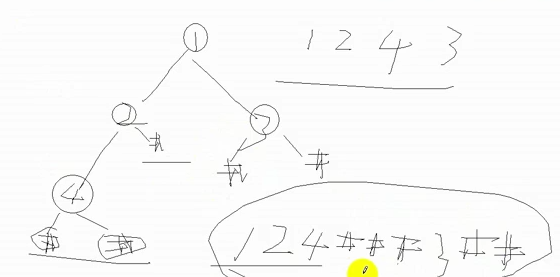 1
1 2 4 3
2
3
#
# #
4
# #
1 2 4 # # # 3 # #